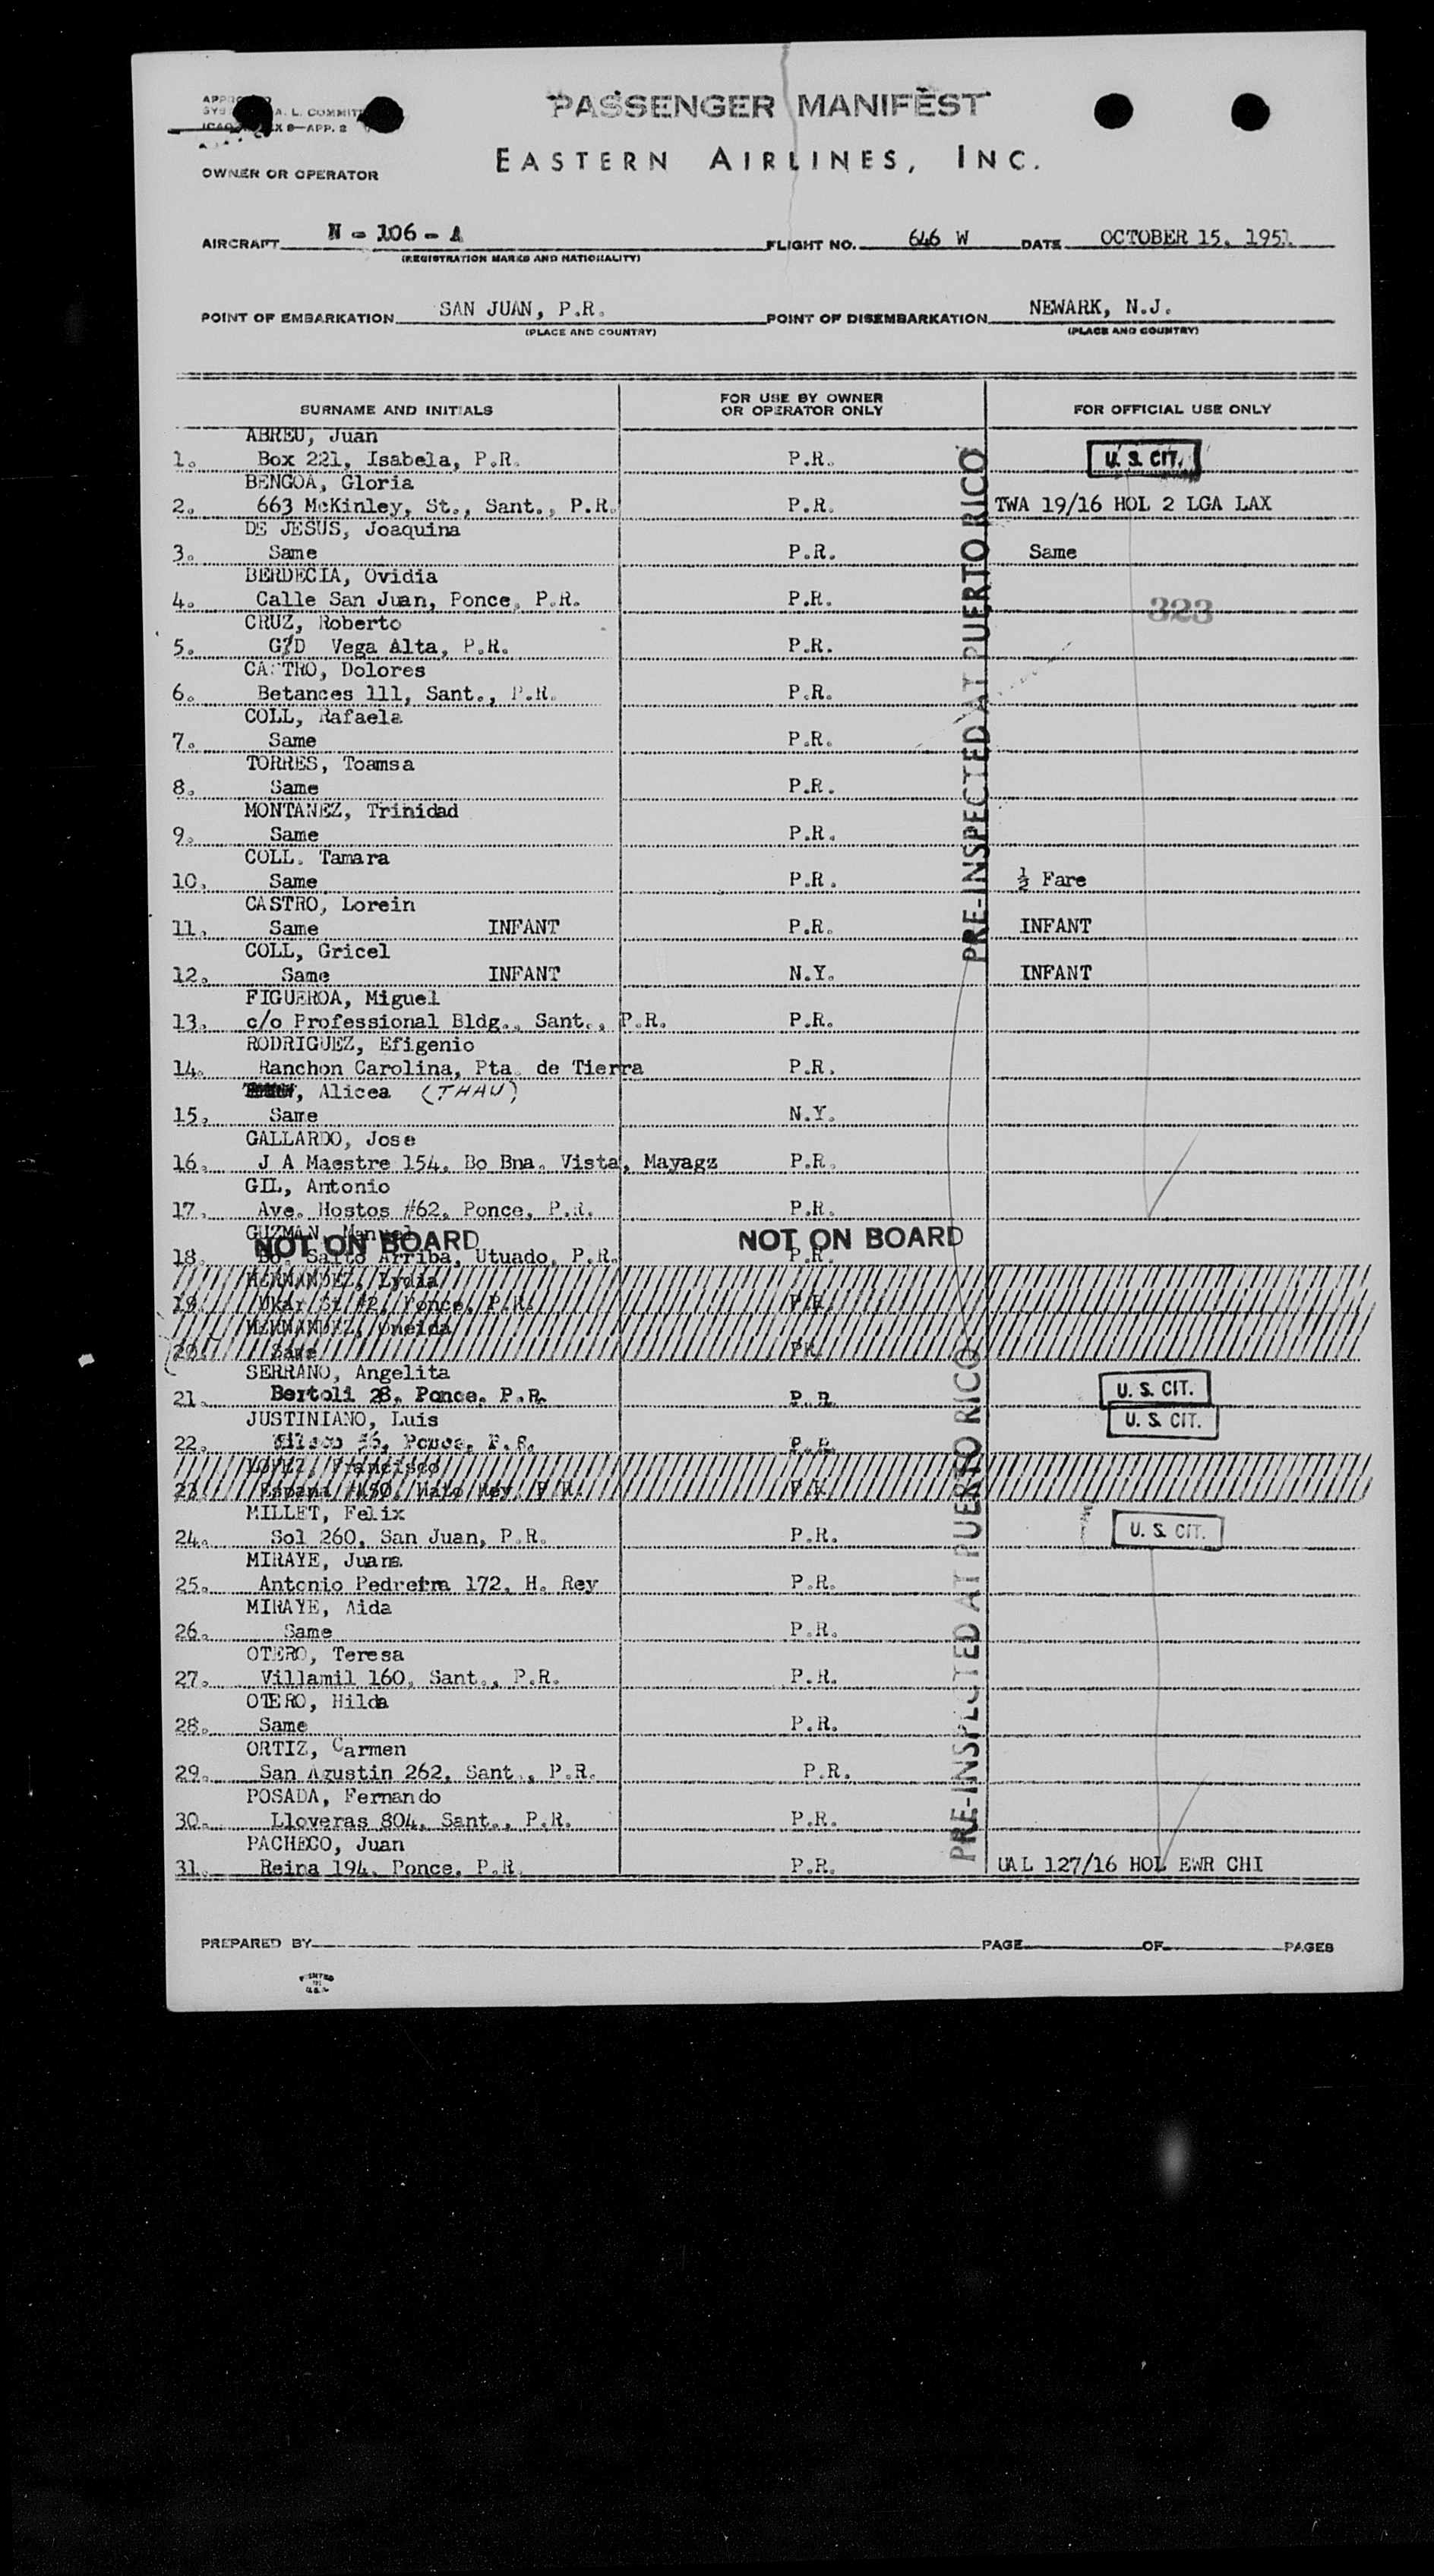 A. L. COMMIT
APP. 2
PASSENGER MANIFEST
EASTERN AIRLINES, INC.
OWNER OR OPERATOR
AIRCRAFT N - 106 - A FLIGHT NO. 646 W DATE OCTOBER 15, 1951
(REGISTRATION MARKS AND NATIONALITY)
POINT OF EMBARKATION SAN JUAN, P.R. POINT OF DISEMBARKATION NEWARK, N.J.
(PLACE AND COUNTRY) (PLACE AND COUNTRY)
SURNAME AND INITIALS FOR USE BY OWNER OR OPERATOR ONLY FOR OFFICIAL USE ONLY
ABREU, Juan
1. Box 221, Isabela, P.R. P.R. U. S. CIT.
BENGOA, Gloria
2. 663 McKinley, St., Sant., P.R. P.R. TWA 19/16 HOL 2 LGA LAX
DE JESUS, Joaquina
3. Same P.R. Same
BERDECIA, Ovidia
4. Calle San Juan, Ponce, P.R. P.R. 323
CRUZ, Roberto
5. G/D Vega Alta, P.R. P.R.
CASTRO, Dolores
6. Betances 111, Sant., P.R. P.R.
COLL, Rafaela
7. Same P.R.
TORRES, Toamsa
8. Same P.R.
MONTANEZ, Trinidad
9. Same P.R.
COLL. Tamara
10. Same P.R. ½ Fare
CASTRO, Lorein
11. Same INFANT P.R. INFANT
COLL, Gricel
12. Same INFANT N.Y. INFANT
FIGUEROA, Miguel
13. c/o Professional Bldg., Sant., P.R. P.R.
RODRIGUEZ, Efigenio
14. Ranchon Carolina, Pta. de Tierra P.R.
, Alicea (THAW)
15. Same N.Y.
GALLARDO, Jose
16. J A Maestre 154, Bo Bna. Vista, Mayagz P.R.
GIL, Antonio
17. Ave. Hostos #62, Ponce, P.R. P.R.
GUZMAN, Manuel
NOT ON BOARD NOT ON BOARD
18. Bo. Salto Arriba, Utuado, P.R. P.R.
HERNANDEZ, Lydia
19. Ukar St #2, Ponce, P.R. P.R.
HERNANDEZ, Oneida
20. Same PR.
SERRANO, Angelita
21. Bertoli 28, Ponce. P.R. P.R. U. S. CIT.
JUSTINIANO, Luis
22. Ponce, P.R. P.R. U. S. CIT.
LOPEZ, Francisco
23. Espana #450, Hato Rey, P.R. P.R.
MILLET, Felix
24. Sol 260, San Juan, P.R. P.R. U. S. CIT.
MIRAYE, Juana
25. Antonio Pedreira 172, H. Rey P.R.
MIRAYE, Aida
26. Same P.R.
OTERO, Teresa
27. Villamil 160, Sant., P.R. P.R.
OTERO, Hilda
28. Same P.R.
ORTIZ, Carmen
29. San Agustin 262, Sant., P.R. P.R.
POSADA, Fernando
30. Lloveras 804, Sant., P.R. P.R.
PACHECO, Juan
31. Reina 194, Ponce, P.R. P.R. UAL 127/16 HOL EWR CHI
PRE-INSPECTED AT PUERTO RICO
PRE-INSPECTED AT PUERTO RICO
PREPARED BY PAGE OF PAGES
PRINTED
IN
U.S.A.